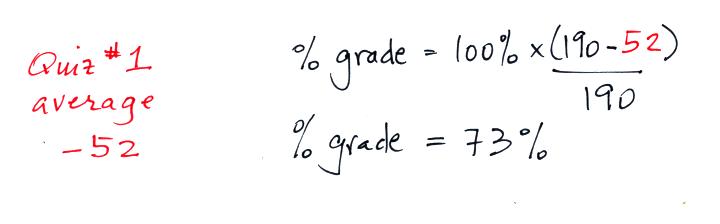 Quiz #1
average
-52
% grade = 100% x (190-52)
190
% grade = 73%